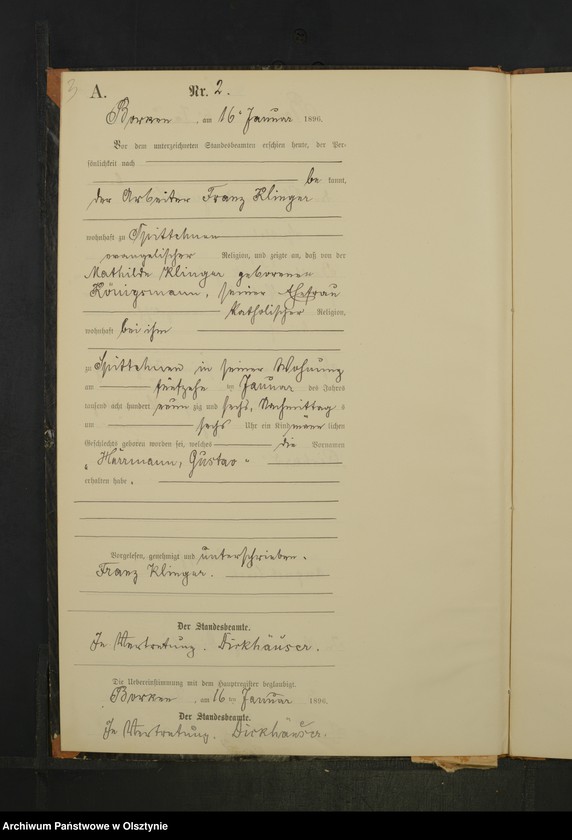 3
A. Nr. 2.
Borken, am 16ᵉ Januar 1896.
Vor dem unterzeichneten Standesbeamten erschien heute, der Per-
sönlichkeit nach
be kannt,
der Arbeiter Franz Klinger
wohnhaft zu Spittehnen
evangelischer Religion, und zeigte an, daß von der
Mathilde Klinger geborenen
Königsmann, seiner Ehefrau
katholischer Religion,
wohnhaft bei ihm
zu Spittehnen in seiner Wohnung
am fünfzehn ten Januar des Jahres
tausend acht hundert neun zig und sechs, Nachmittag s
um sechs Uhr ein Kind männ lichen
Geschlechts geboren worden sei, welches die Vornamen
„Herrmann, Gustav“
erhalten habe.
Vorgelesen, genehmigt und unterschrieben.
Franz Klinger.
Der Standesbeamte.
In Vertretung. Dickhäuser.
Die Uebereinstimmung mit dem Hauptregister beglaubigt.
Borken, am 16 ten Januar 1896.
Der Standesbeamte.
In Vertretung. Dickhäuser.
Archiwum Państwowe w Olsztynie